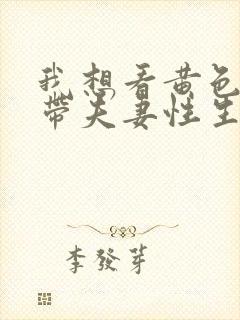 我想看黄色
带夫妻性生
李發芽